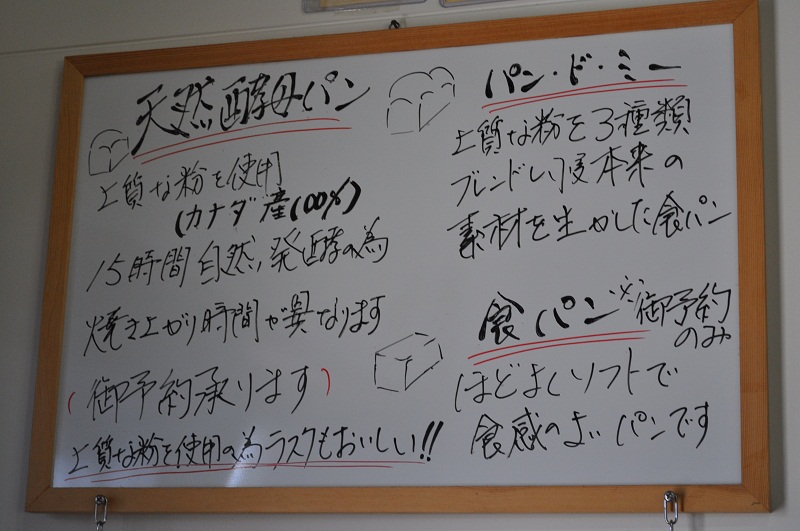 天然酵母パン
上質な粉を使用
(カナダ産100%)
15時間自然発酵の為
焼き上がり時間が異なります
(御予約承ります)
上質な粉を使用の為ラスクもおいしい!!
パン・ド・ミー
上質な粉を3種類
ブレンドし、本来の
素材を生かした食パン
食パン ※御予約
のみ
ほどよくソフトで
食感のよいパンです